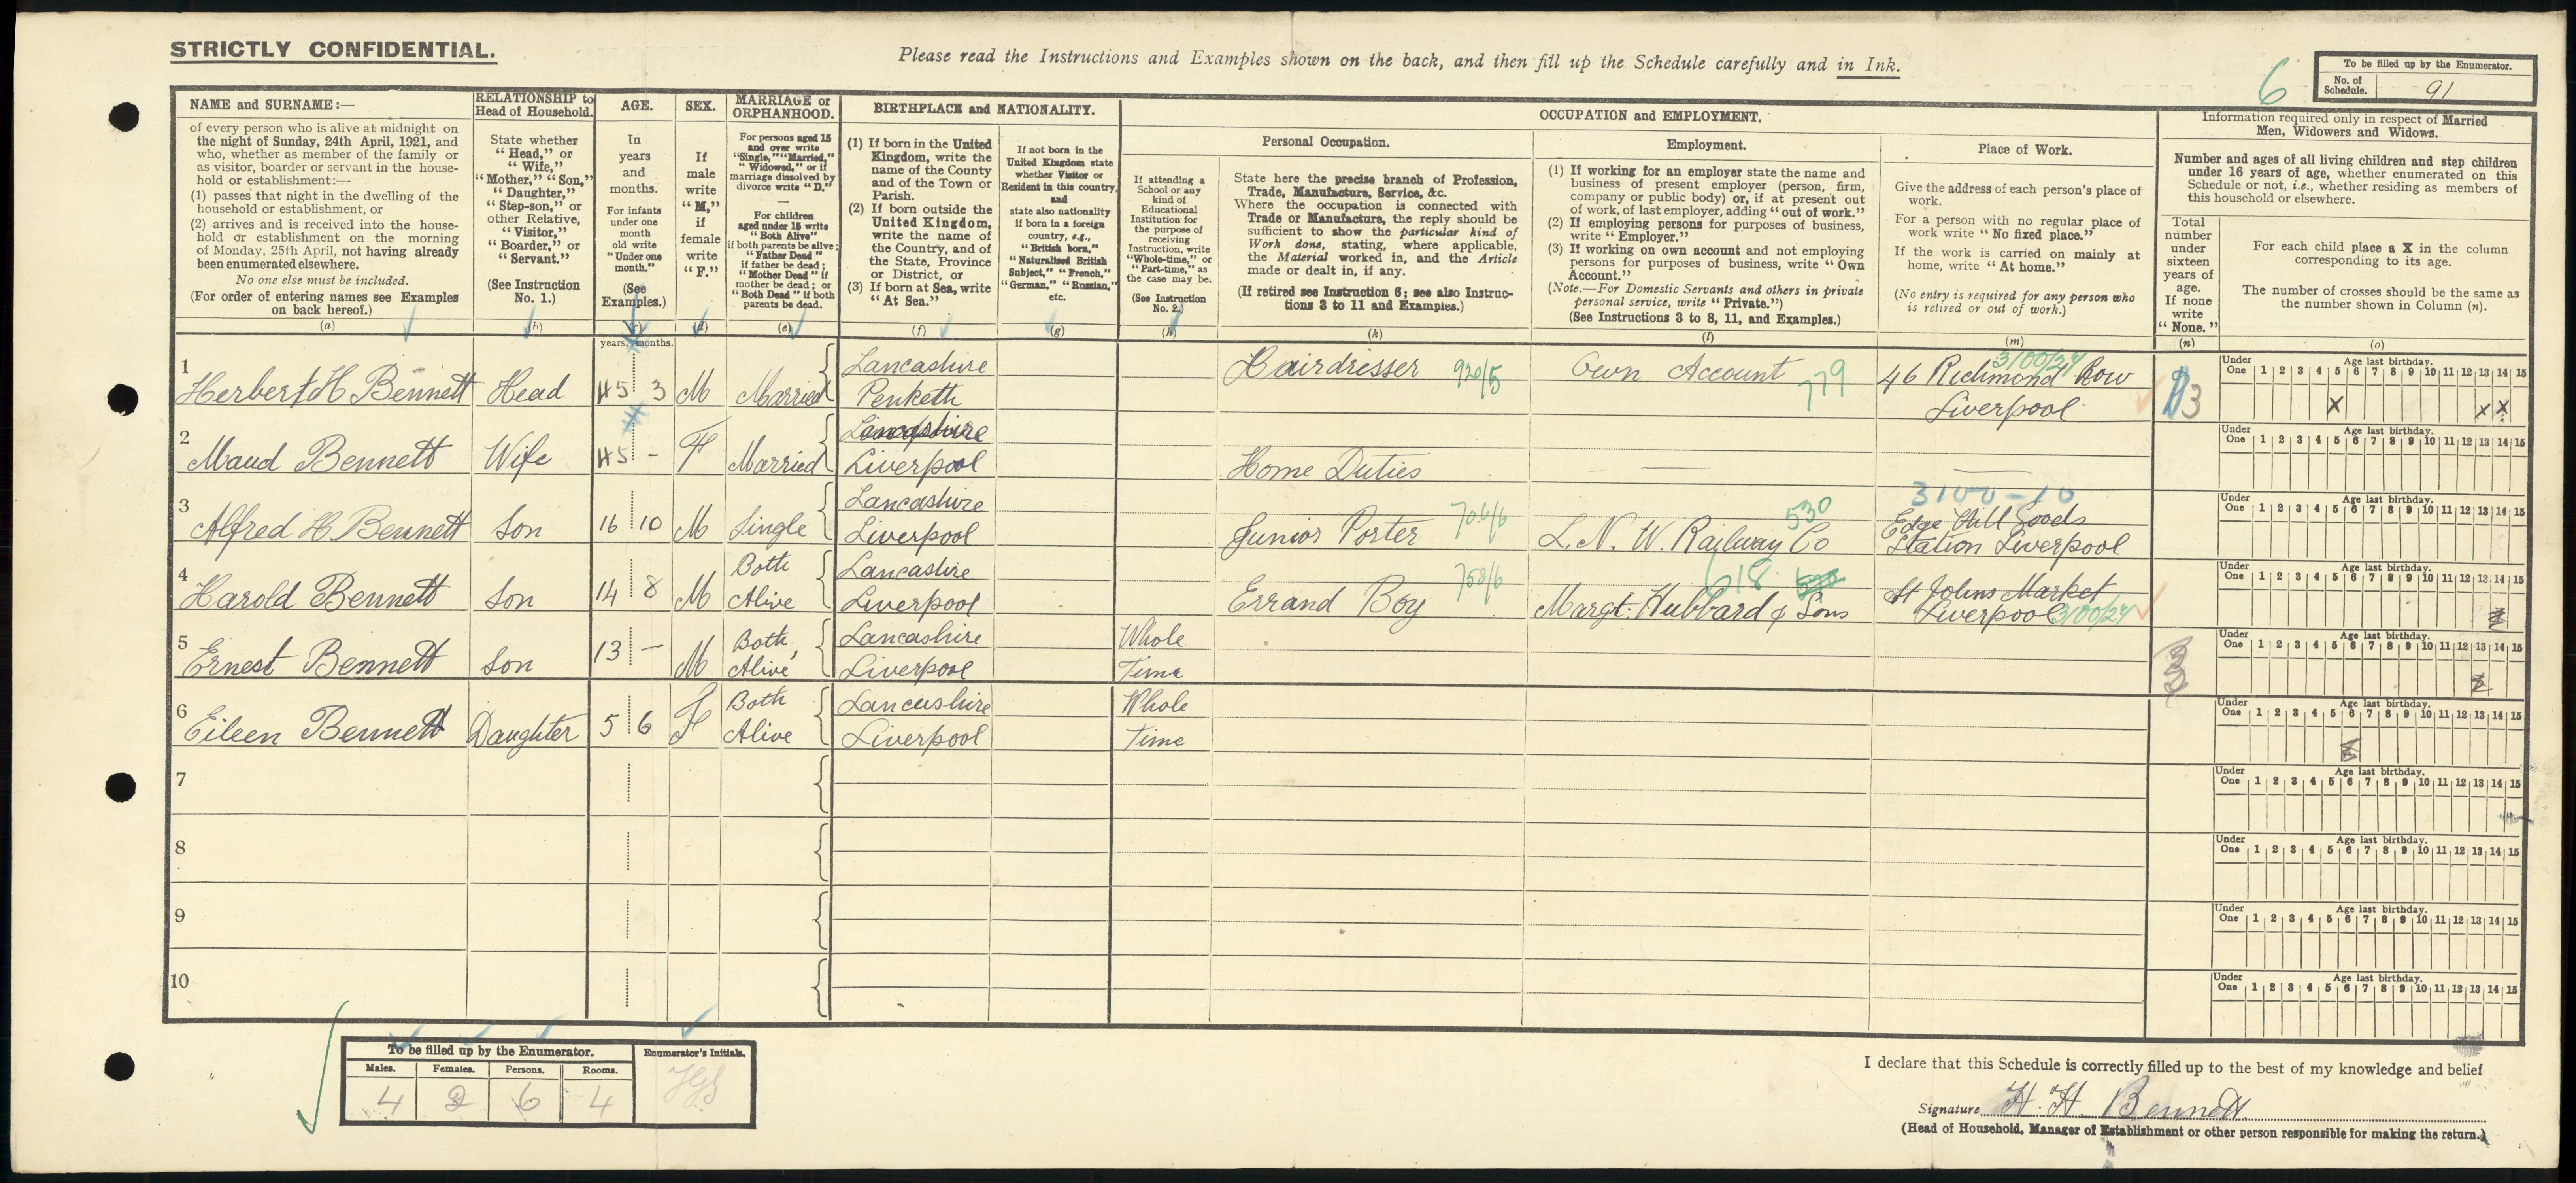 STRICTLY CONFIDENTIAL.
Please read the Instructions and Examples shown on the back, and then fill up the Schedule carefully and in Ink.
6
To be filled up by the Enumerator.
No. of Schedule. 91
NAME and SURNAME:—
of every person who is alive at midnight on
the night of Sunday, 24th April, 1921, and
who, whether as member of the family or
as visitor, boarder or servant in the house-
hold or establishment:—
(1) passes that night in the dwelling of the
household or establishment, or
(2) arrives and is received into the house-
hold or establishment on the morning
of Monday, 25th April, not having already
been enumerated elsewhere.
No one else must be included.
(For order of entering names see Examples
on back hereof.)
(a)
RELATIONSHIP to
Head of Household.
State whether
"Head," or
"Wife,"
"Mother," "Son,"
"Daughter,"
"Step-son," or
other Relative,
"Visitor,"
"Boarder," or
"Servant."
(See Instruction
No. 1.)
(b)
AGE.
In
years
and
months.
For infants
under one
month
old write
"Under one
month."
(See
Examples.)
(c)
SEX.
If
male
write
"M,"
if
female
write
"F."
(d)
MARRIAGE or
ORPHANHOOD.
For persons aged 15
and over write
"Single," "Married,"
"Widowed," or if
marriage dissolved by
divorce write "D."
—
For children
aged under 15 write
"Both Alive"
if both parents be alive;
"Father Dead"
if father be dead;
"Mother Dead" if
mother be dead; or
"Both Dead" if both
parents be dead.
(e)
BIRTHPLACE and NATIONALITY.
(1) If born in the United
Kingdom, write the
name of the County
and of the Town or
Parish.
(2) If born outside the
United Kingdom,
write the name of
the Country, and of
the State, Province
or District, or
(3) If born at Sea, write
"At Sea."
(f)
If not born in the
United Kingdom state
whether Visitor or
Resident in this country,
and
state also nationality
if born in a foreign
country, e.g.,
"British born,"
"Naturalised British
Subject," "French,"
"German," "Russian,"
etc.
(g)
OCCUPATION and EMPLOYMENT.
If attending a
School or any
kind of
Educational
Institution for
the purpose of
receiving
Instruction, write
"Whole-time," or
"Part-time," as
the case may be.
(See Instruction
No. 2.)
(h)
Personal Occupation.
State here the precise branch of Profession,
Trade, Manufacture, Service, &c.
Where the occupation is connected with
Trade or Manufacture, the reply should be
sufficient to show the particular kind of
Work done, stating, where applicable,
the Material worked in, and the Article
made or dealt in, if any.
(If retired see Instruction 6; see also Instruc-
tions 3 to 11 and Examples.)
(k)
Employment.
(1) If working for an employer state the name and
business of present employer (person, firm,
company or public body) or, if at present out
of work, of last employer, adding "out of work."
(2) If employing persons for purposes of business,
write "Employer."
(3) If working on own account and not employing
persons for purposes of business, write "Own
Account."
(Note.—For Domestic Servants and others in private
personal service, write "Private.")
(See Instructions 3 to 8, 11, and Examples.)
(l)
Place of Work.
Give the address of each person's place of
work.
For a person with no regular place of
work write "No fixed place."
If the work is carried on mainly at
home, write "At home."
(No entry is required for any person who
is retired or out of work.)
(m)
Information required only in respect of Married
Men, Widowers and Widows.
Number and ages of all living children and step children
under 16 years of age, whether enumerated on this
Schedule or not, i.e., whether residing as members of
this household or elsewhere.
Total
number
under
sixteen
years of
age.
If none
write
"None."
(n)
For each child place a X in the column
corresponding to its age.
The number of crosses should be the same as
the number shown in Column (n).
(o)
years. months.
1 Herbert H Bennett Head 45 3 M Married Lancashire Penketh Hairdresser 920/5 Own Account 779 46 Richmond Row Liverpool 3100/24 3
Under One Age last birthday. 1 2 3 4 5 6 7 8 9 10 11 12 13 14 15
X X X
2 Maud Bennett Wife 45 - F Married Lancashire Liverpool Home Duties — — —
Under One Age last birthday. 1 2 3 4 5 6 7 8 9 10 11 12 13 14 15
3 Alfred H Bennett Son 16 10 M Single Lancashire Liverpool Junior Porter 706/6 L. N. W. Railway Co 530 Edge Hill Goods Station Liverpool 3100-10
Under One Age last birthday. 1 2 3 4 5 6 7 8 9 10 11 12 13 14 15
4 Harold Bennett Son 14 8 M Both Alive Lancashire Liverpool Errand Boy 758/6 Margt: Hubbard & Sons 618 St Johns Market Liverpool 3100/24
Under One Age last birthday. 1 2 3 4 5 6 7 8 9 10 11 12 13 14 15
5 Ernest Bennett Son 13 — M Both Alive Lancashire Liverpool Whole Time
Under One Age last birthday. 1 2 3 4 5 6 7 8 9 10 11 12 13 14 15
6 Eileen Bennett Daughter 5 6 F Both Alive Lancashire Liverpool Whole Time
Under One Age last birthday. 1 2 3 4 5 6 7 8 9 10 11 12 13 14 15
7
Under One Age last birthday. 1 2 3 4 5 6 7 8 9 10 11 12 13 14 15
8
Under One Age last birthday. 1 2 3 4 5 6 7 8 9 10 11 12 13 14 15
9
Under One Age last birthday. 1 2 3 4 5 6 7 8 9 10 11 12 13 14 15
10
Under One Age last birthday. 1 2 3 4 5 6 7 8 9 10 11 12 13 14 15
To be filled up by the Enumerator.
Enumerator's Initials.
Males. Females. Persons. Rooms.
4 2 6 4
I declare that this Schedule is correctly filled up to the best of my knowledge and belief
Signature H. H. Bennett
(Head of Household, Manager of Establishment or other person responsible for making the return.)